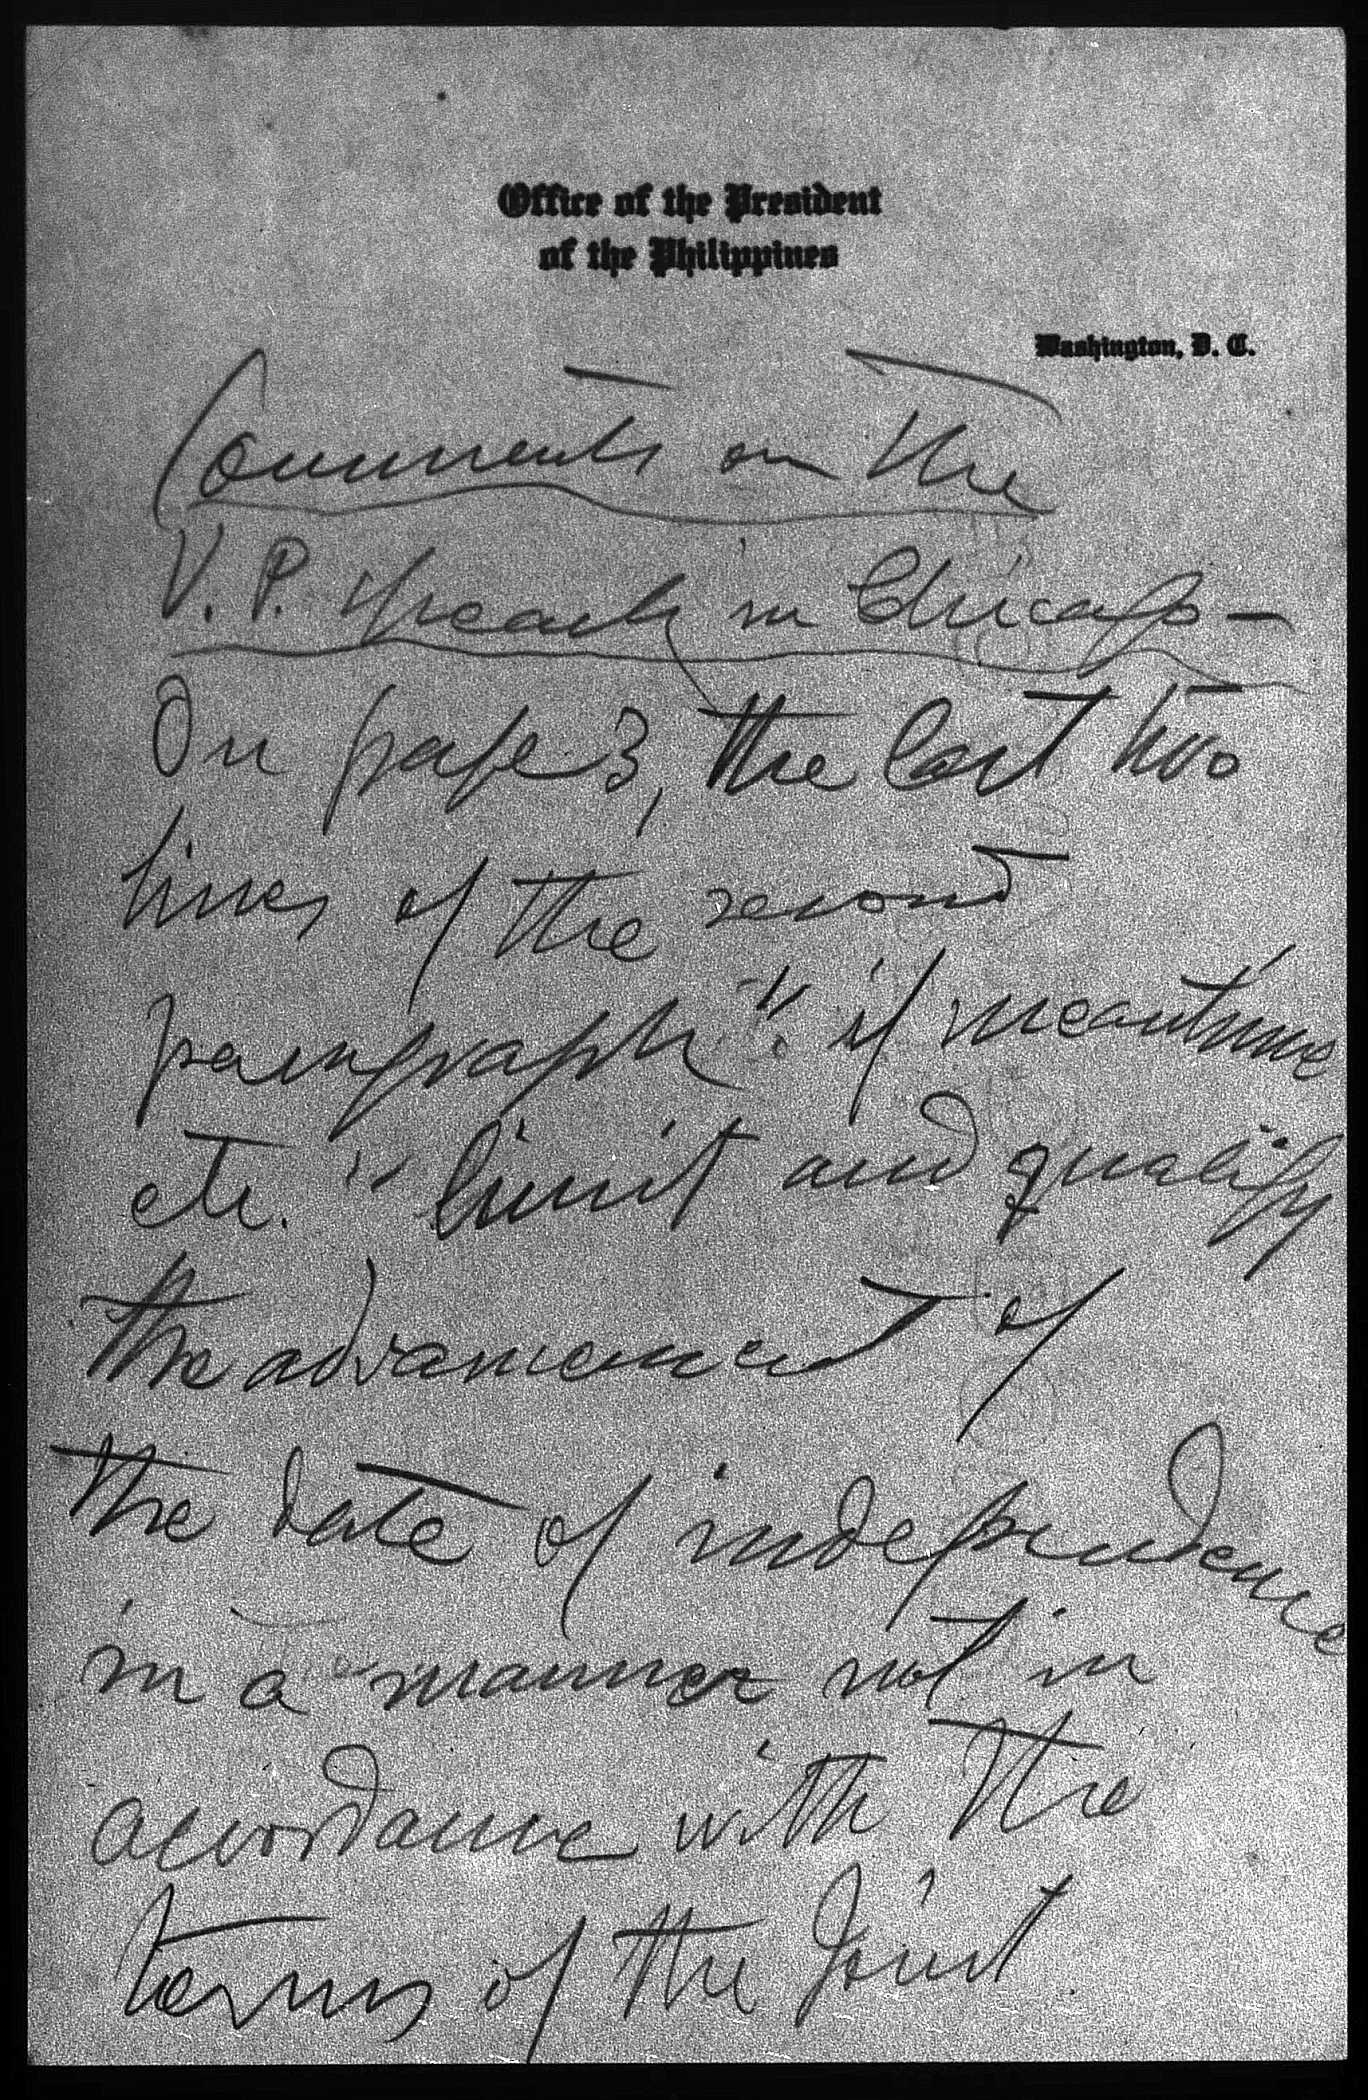 Office of the President
of the Philippines
Washington, D. C.
Comments on the
V. P. speech in Chicago —
On page 3, the last two
lines of the second
paragraph ": if meantime
etc. " limit and qualify
the advancement of
the date of independence
in a manner not in
accordance with the
terms of the Joint